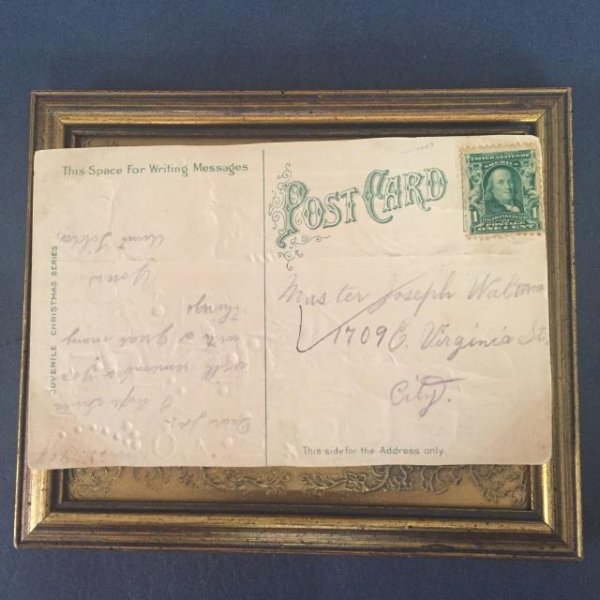 This Space For Writing Messages
JUVENILE CHRISTMAS SERIES
POST CARD
UNITED STATES OF
1 1
POSTAGE
ONE CENT
Dear Joe.
I hope Santa
will remember you
with a great many
things
Yours.
Aunt Tilda,
Master Joseph
1709 E. Virginia St.
City.
This side for the Address only.